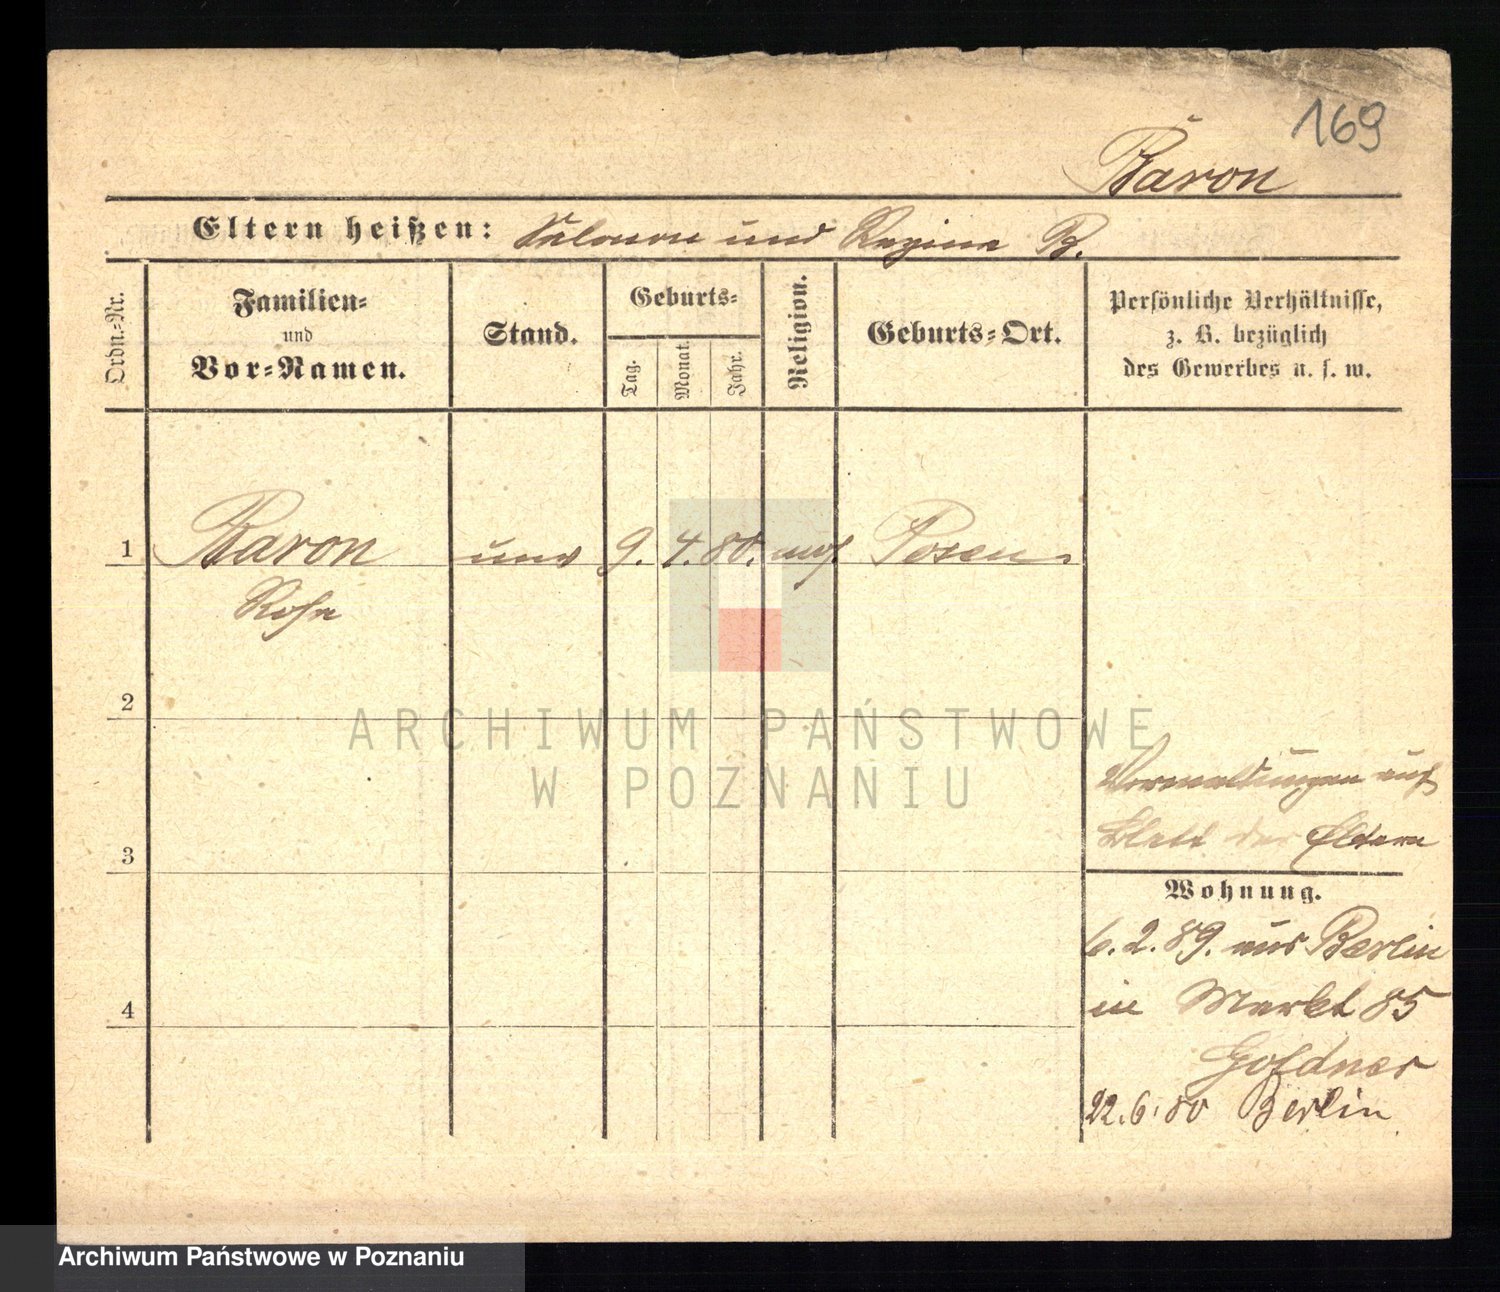 169
Baron
Eltern heißen: Salomon und Regina B.
Ordn.-Nr.
Familien-
und
Vor-Namen.
Stand.
Geburts-
Tag.
Monat.
Jahr.
Religion.
Geburts-Ort.
Persönliche Verhältnisse,
z. B. bezüglich
des Gewerbes u. s. w.
1 Baron unv 9. 4. 80. mos. Posen.
Rosa
2
ARCHIWUM PAŃSTWOWE
W POZNANIU
3
auf
Blatt der Eltern
Wohnung.
6.2.89. aus Berlin
in Markt 85
Goldner
4
22.6. Berlin
Archiwum Państwowe w Poznaniu